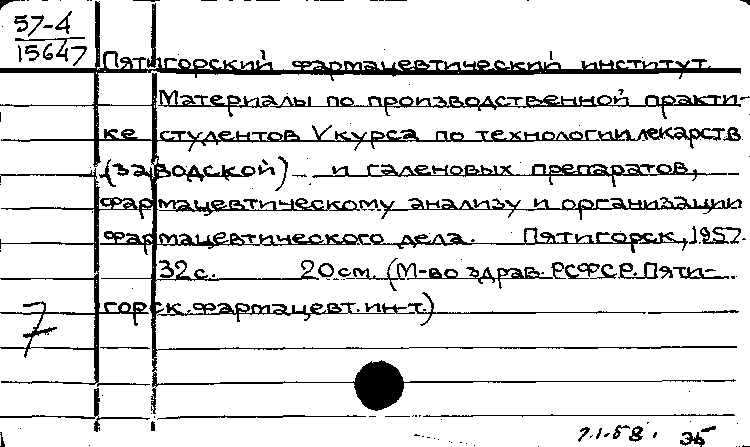 57-4
15647
Пятигорский фармацевтический институт.
Материалы по производственной практи-
ке студентов V курса по технологии лекарств
(заводской) и галеновых препаратов,
фармацевтическому анализу и организации
фармацевтического дела. Пятигорск, 1957.
32 с. 20 см. (М-во здрав. РСФСР. Пяти-
горск. фармацевт. ин-т.)
7
7.1.58.